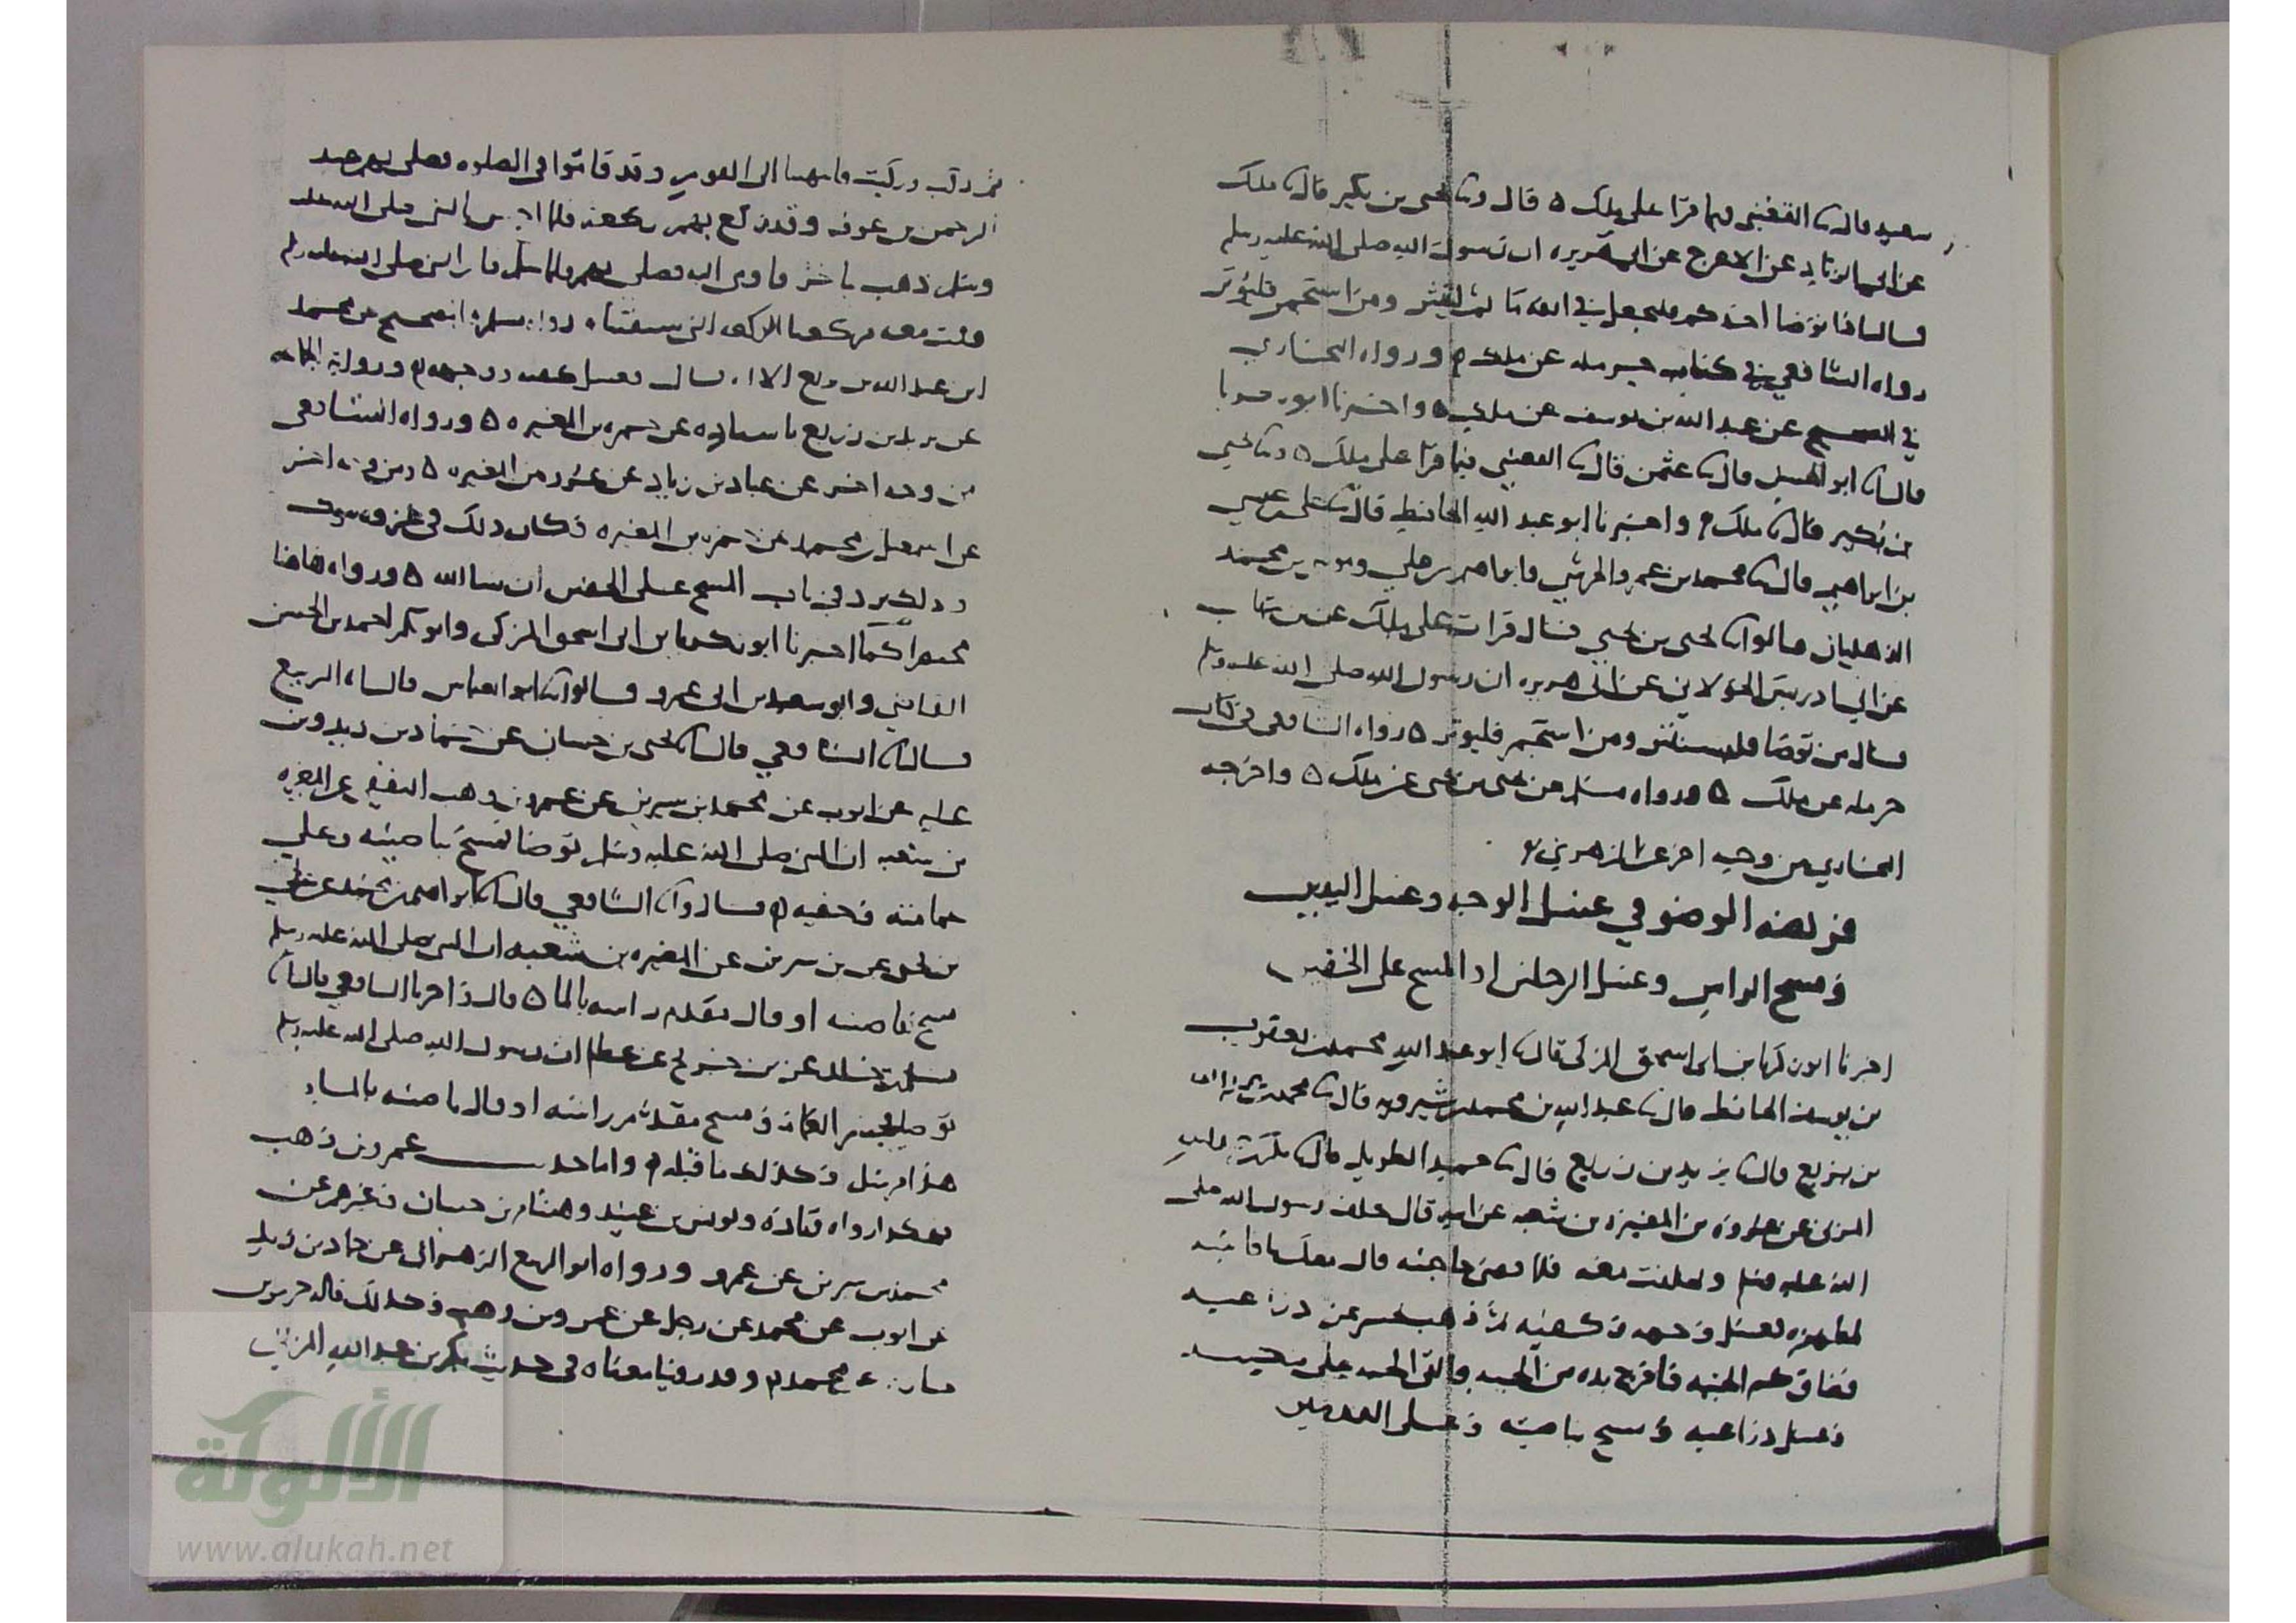 سعيد قال ثنا القعنبي فيما قرا على ملك ه قال وثنا يحيى بن بكير قال ثنا ملك
عن ابي الزناد عن الاعرج عن ابي هريره ان رسول الله صلى الله عليه وسلم
قال اذا توضا احدكم فليجعل في انفه ما ثم لينثر ومن استجمر فليوتر
رواه الشافعي في كتاب حرمله عن ملك ورواه البخاري
في الصحيح عن عبد الله بن يوسف عن ملك ه واخبرنا ابو زكريا
قال انا ابو الحسن قال ثنا عثمن قال ثنا القعنبي فيما قرا على ملك ه وثنا يحيى
بن بكير قال ثنا ملك واخبرنا ابو عبد الله الحافظ قال ثنا علي بن عيسى
بن ابراهيم قال ثنا محمد بن عمرو الحرشي وابراهيم بن علي وموسى بن محمد
الذهليان قالوا ثنا يحيى بن يحيى قال قرات على ملك عن بن شهاب
عن ابي ادريس الخولاني عن ابي هريره ان رسول الله صلى الله عليه وسلم
قال من توضا فليستنثر ومن استجمر فليوتر ه رواه الشافعي في كتاب
حرمله عن ملك ه ورواه مسلم عن يحيى بن يحيى عن ملك ه واخرجه
البخاري من وجه اخر عن الزهري
فريضه الوضو في غسل الوجه وغسل اليدين
ومسح الراس وغسل الرجلين او المسح على الخفين
اخبرنا ابو زكريا بن ابي اسحق المزكى قال ثنا ابو عبد الله محمد بن يعقوب
بن يوسف الحافظ قال ثنا عبد الله بن محمد بن شيرويه قال ثنا محمد بن عبد الله
بن بزيع قال ثنا يزيد بن زريع قال ثنا حميد الطويل قال ثنا بكر بن عبد الله
المزني عن عروة بن المغيرة بن شعبه عن ابيه قال تخلف رسول الله صلى
الله عليه وسلم وتخلفت معه فلما قضى حاجته قال معك ما فاتيته
بمطهره فغسل وجهه وكفيه ثم ذهب يحسر عن ذراعيه
فضاق كم الجبه فاخرج يده من الجبه والقى الجبه على منكبيه
وغسل ذراعيه ومسح بناصيته وعلى العمامه
ثم ركب وركبت فانتهينا الى القوم وقد قاموا في الصلوه يصلي بهم عبد
الرحمن بن عوف وقد ركع بهم ركعه فلما احس بالنبي صلى الله عليه
وسلم ذهب يتاخر فاومى اليه فصلى بهم فلما سلم قام النبي صلى الله عليه وسلم
وقمت معه فركعنا الركعه التي سبقتنا ه رواه مسلم في الصحيح عن محمد
ابن عبد الله بن بزيع الا انه قال فغسل كفيه ووجهه ورواية الجماعه
عن يزيد بن زريع باسناده عن حمزه بن المغيره ه ورواه الشافعي
من وجه اخر عن عباد بن زياد عن عروه بن المغيره ه ومن وجه اخر
عن اسمعيل بن محمد عن حمزه بن المغيره وكان ذلك في غزوه تبوك
وذلك يرد في باب المسح على الخفين ان شا الله ه ورواه هاهنا
مختصرا كما اخبرنا ابو زكريا بن ابي اسحق المزكى وابو بكر احمد بن الحسن
القاضي وابو سعيد بن ابي عمرو قالوا ثنا ابو العباس قال انا الربيع
قال انا الشافعي قال انا يحيى بن حسان عن حماد بن زيد وبن
عليه عن ايوب عن محمد بن سيرين عن عمرو بن وهب الثقفي عن المغيره
بن شعبه ان النبي صلى الله عليه وسلم توضا فمسح بناصيته وعلى
عمامته وخفيه قال وانا الشافعي قال انا ابراهيم بن محمد عن علي
بن يحيى عن بن سيرين عن المغيره بن شعبه ان النبي صلى الله عليه وسلم
مسح بناصيته او قال مقدم راسه بالما ه قال واخبرنا الشافعي قال انا
مسلم بن خالد عن بن جريج عن عطا ان رسول الله صلى الله عليه وسلم
توضا فحسر العمامه ومسح مقدم راسه او قال ناصيته بالماء
هذا مرسل وكذلك ما قبله واما حديث عمرو بن وهب
فهكذا رواه قتادة ويونس بن عبيد وهشام بن حسان وغيرهم عن
محمد بن سيرين عن عمرو ورواه ابو الربيع الزهراني عن حماد بن زيد
عن ايوب عن محمد عن رجل عن عمرو بن وهب وكذلك قاله جرير بن
حازم عن محمد وقد روينا معناه في حديث بكر بن عبد الله المزني
الألوكة
www.alukah.net